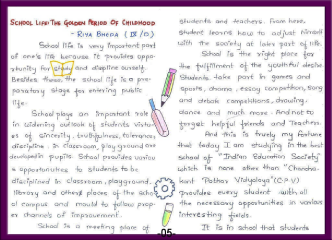 SCHOOL LIFE: THE GOLDEN PERIOD OF CHILDHOOD
- RIYA BHEDA (IX/D)
School life is very important part
of one's life because it provides oppor-
tunity for study and discipline ourself.
Besides these, the school life is a pre-
paratory stage for entering public
life.
School plays an important role
in widening outlook of students virtues
of sincerity, truthfulness, tolerance,
discipline. In classroom, play ground are
developed in pupils. School provides various
opportunities to students to be
disciplined in classroom, playground,
library and others places of the school
campus and mould to follow prop-
er channels of improvement.
School is a meeting place of
students and teachers. From here,
student learns how to adjust himself
with the society at later part of life.
School is the right place for
the fulfillment of the youthful desire
Students take part in games and
sports, drama, essay competition, song
and debate competitions, drawing,
dance and much more. And not to
forget helpful friends and teachers.
And this is truly my fortune
that today I am studying in the best
school of "Indian Education Society"
which is none other than "Chandra-
kant Patkar Vidyalaya" (C.P.V)
provides every student with all
the necessary opportunities in various
interesting fields.
It is in school that students
-05-